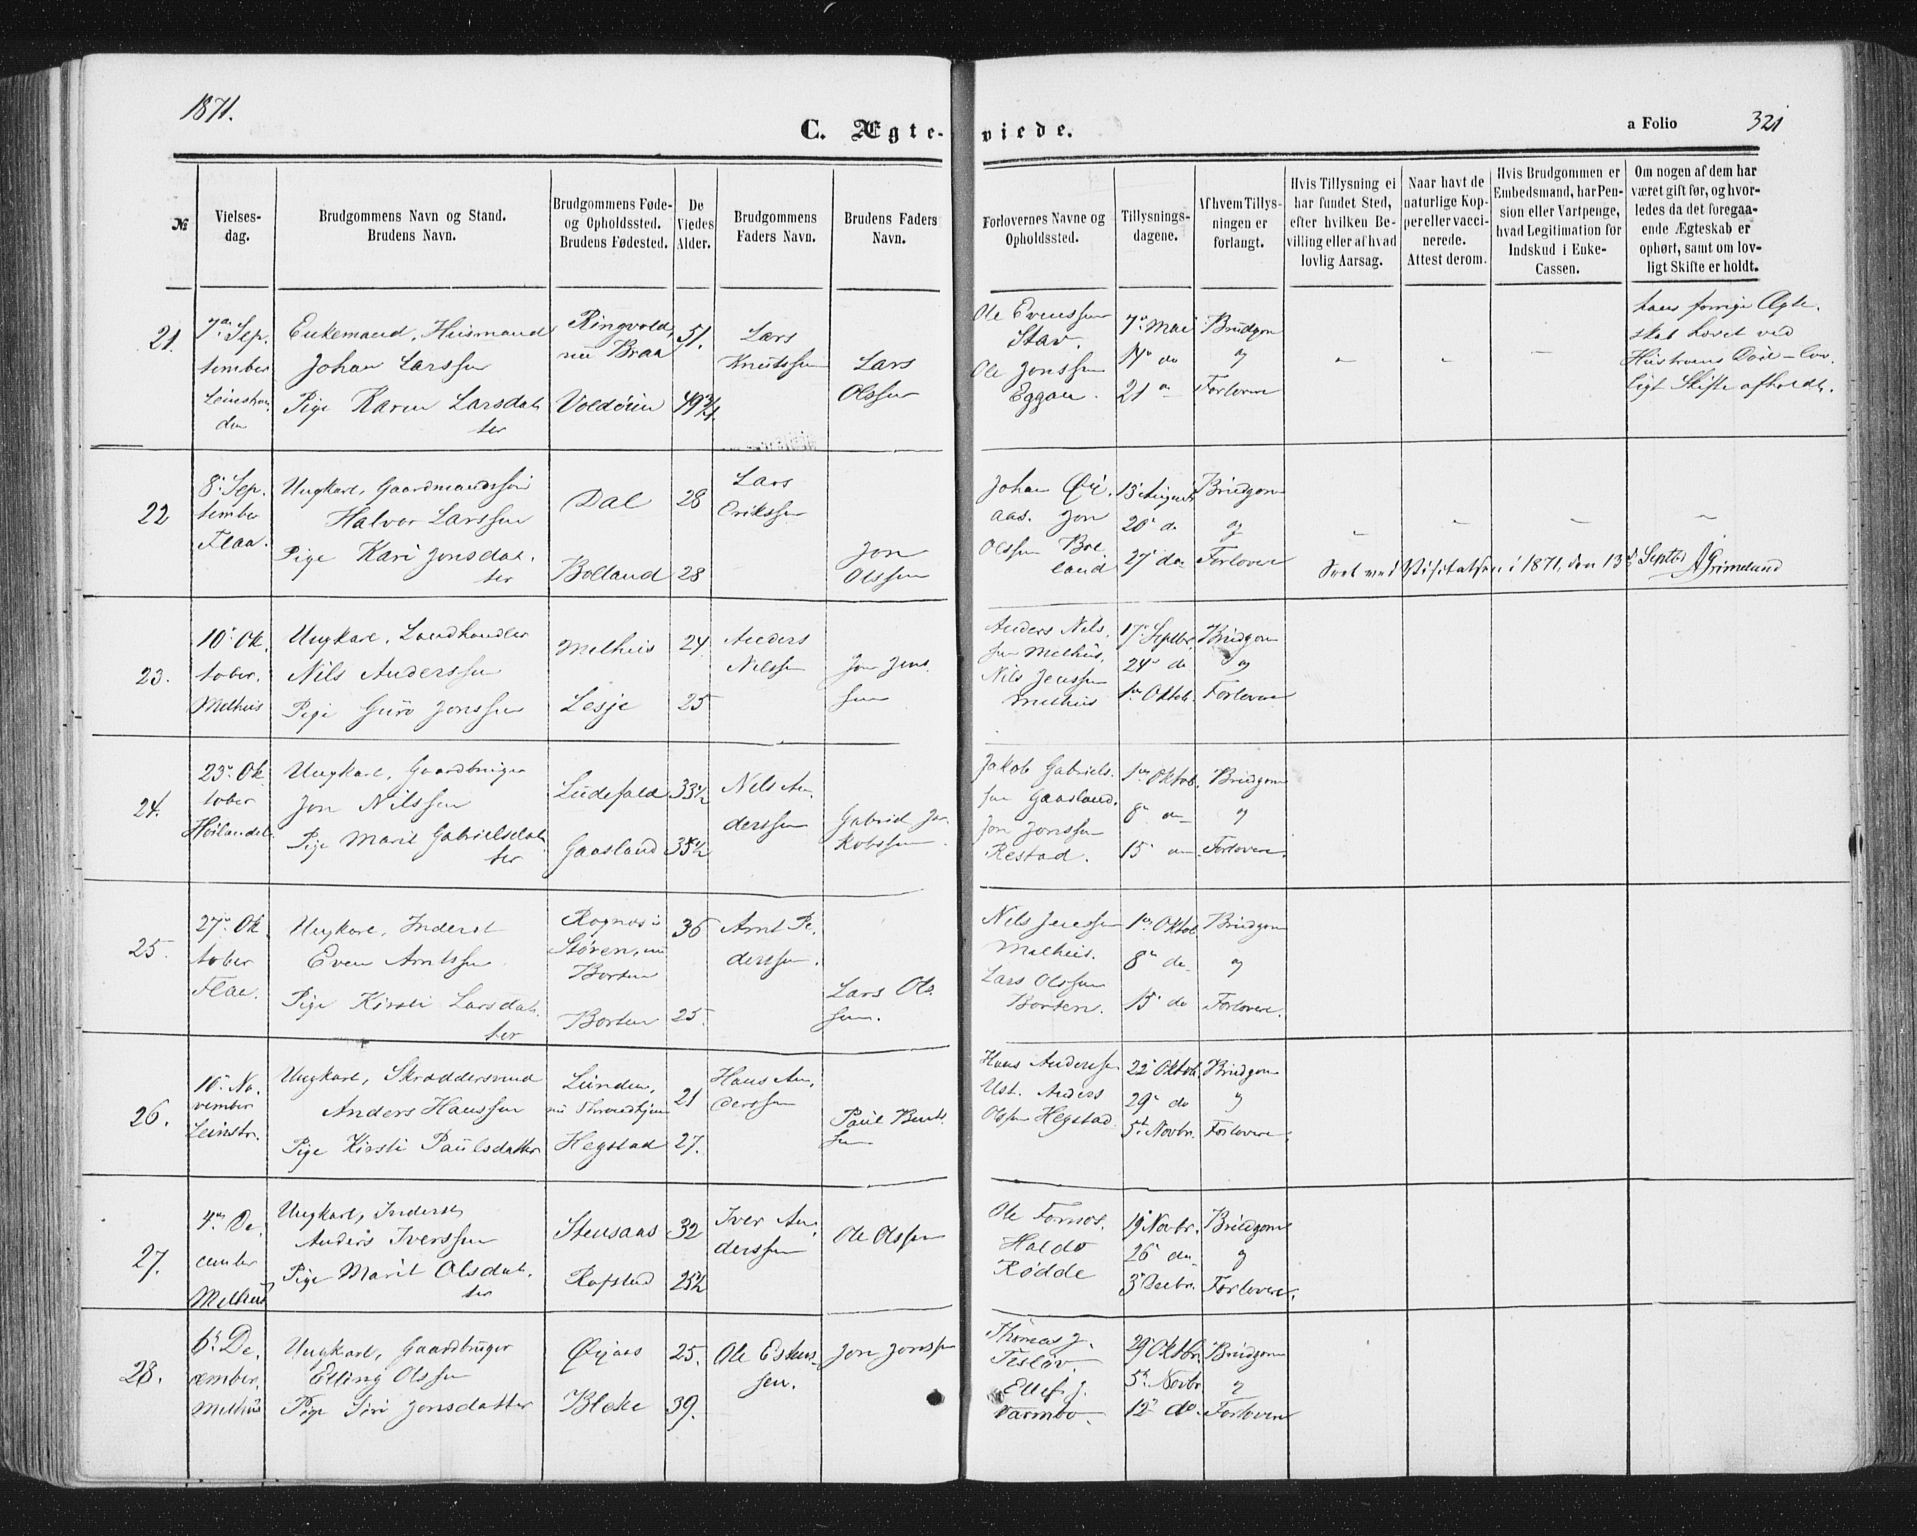 1871.
C. Ægteviede.
a Folio 321
№
Vielses-
dag.
Brudgommens Navn og Stand.
Brudens Navn.
Brudgommens Føde-
og Opholdssted.
Brudens Fødested.
De
Viedes
Alder.
Brudgommens
Faders Navn.
Brudens Faders
Navn.
Forlovernes Navne og
Opholdssted.
Tillysnings-
dagene.
Af hvem Tillys-
ningen er
forlangt.
Hvis Tillysning ei
har fundet Sted,
efter hvilken Be-
villing eller af hvad
lovlig Aarsag.
Naar havt de
naturlige Kop-
per eller vacci-
nerede.
Attest derom.
Hvis Brudgommen er
Embedsmand, har Pen-
sion eller Vartpenge,
hvad Legitimation for
Indskud i Enke-
Cassen.
Om nogen af dem har
været gift før, og hvor-
ledes da det foregaa-
ende Ægteskab er
ophørt, samt om lov-
ligt Skifte er holdt.
21.
7de Sep.
tember
Enkemand, Husmand
Johan Larssen
Pige Karen Larsdat
ter
Ringvold,
nu Braa
Voldøien
51.
49¾
Lars
Knutssen
Lars
Olssen
Ole Evenssen
Stav.
Ole Jonssen
Eggan.
7de Mai
14de do
21
Brudgom
og
Forlovere
hans forrige Ægte
skab hævet ved
Hustruens Død - lov
ligt Skifte afholdt.
22
8de Sep.
tember
Flaa.
Ungkarl, Gaardmandssøn
Halvor Larssen
Pige Kari Jonsdat.
ter
Dal
Bolland
28
28
Lars
Erikssen
Jon
Olssen
Johan Øi,
aas. Jon
Olssen Bol
land
13 August
20 do
27 do
Brudgom
og
Forlovere
Seet ved Visitatsen i 1871, den 13de Septbr Grimelund
23.
10de Ok
tober.
Melhus
Ungkarl, Landhandler
Nils Anderssen
Pige Guro Jonssen
Melhus
Lesje
24.
25
Anders
Nilssen
Jon Jens
sen
Anders Nils.
sen Melhus.
Nils Jenssen
Melhus
17de Septbr.
24de do
1ste Oktob.
Brudgom
og
Forlovere
24.
23de Ok
tober
Høilandet
Ungkarl, Gaardbruger
Jon Nilssen
Pige Marit Gabrielsdat
ter
Ludefald
Gaasland
33½
35½
Nils An,
derssen
Gabriel Ja,
kobssen
Jakob Gabriels.
sen Gaasland.
Jon Jonssen
Restad.
1ste Oktob.
8de
15de
Brudgom
og
Forlovere.
25.
27de Ok
tober
Flaa.
Ungkarl, Inderst
Even Arntssen
Pige Kirsti Larsdat.
ter
Rognes i
Støren, nu
Borten
Borten
36
25.
Arnt Pe,
derssen.
Lars Ols
sen.
Nils Jenssen
Melhus.
Lars Olssen
Borten.
1ste Oktob
8de do
15de do
Brudgom
og
Forlovere.
26.
10de No.
vember
Leinstr.
Ungkarl, Skræddersvend
Anders Hanssen
Pige Kirsti Paulsdatter
Lunden,
nu Throndhjem
Hegstad
21
27.
Hans An,
derssen
Paul Bent
sen
Hans Anderssen
Ust. Anders
Olssen Hegstad
22de Oktob.
29de do
5te Novbr.
Brudgom
og
Forlovere.
27.
4de De,
cember
Melhus
Ungkarl, Inderst
Anders Iverssen
Pige Marit Olsdat.
ter
Stensaas
Rofstad
32
25½
Iver An,
derssen
Ole Olssen
Ole Fornes.
Haldo
Rødde
19de Novbr.
26de do
3de Decbr.
Brudgom
og
Forlovere.
28.
6te De,
cember,
Melhus
Ungkarl, Gaardbruger
Elling Olssen
Pige Siri Jonsdatter
Øiaas
Bleke
25.
39.
Ole Estens-
sen.
Jon Jonssen
Thomas J.
Teslöv.
Ellef J.
Varmbo.
29de Oktbr.
5te Novbr
12te do.
Brudgom
og
Forlovere